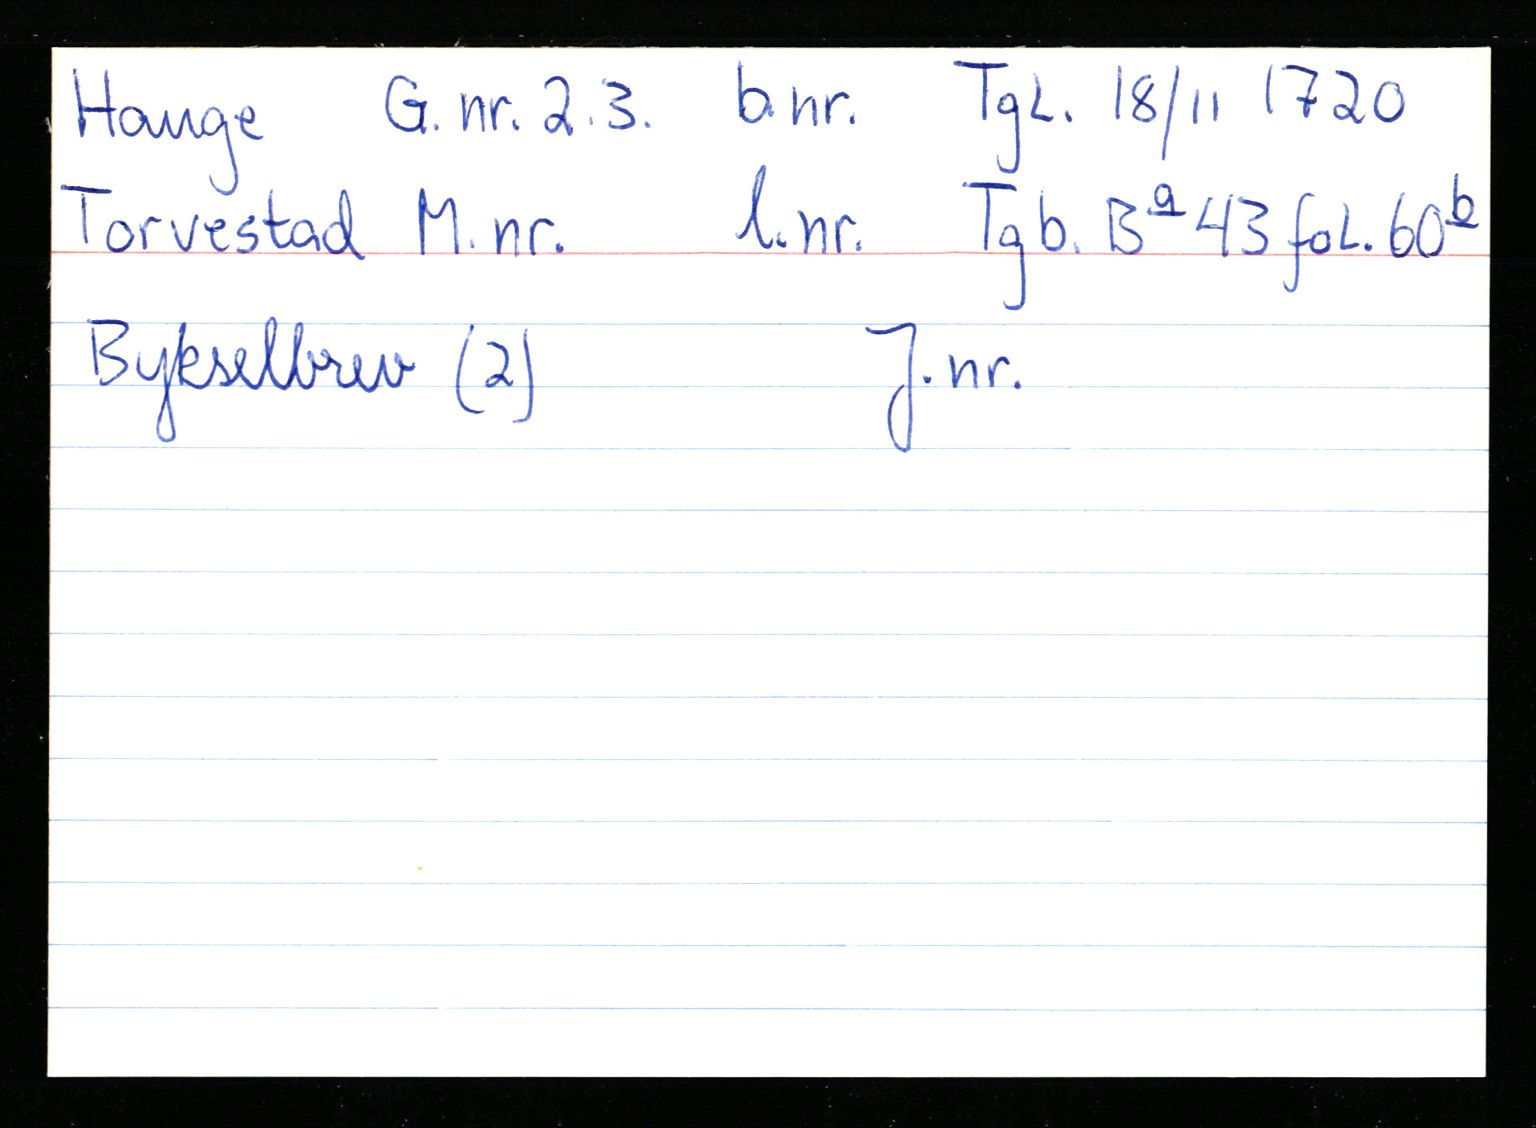 Hauge G.nr. 2.3. b.nr. Tgl. 18/11 1720
Torvestad M.nr. l.nr. Tgb. Bª 43 fol. 60ᵇ
Bykselbrev (2) J.nr.